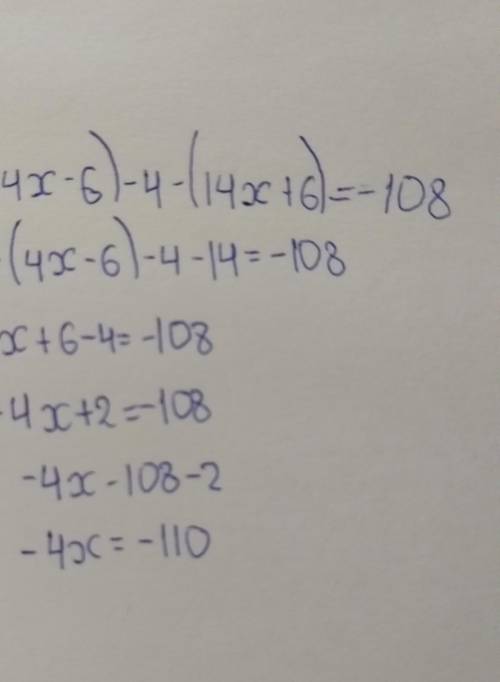 4x-6)-4-(14x+6)=-108
-(4x-6)-4-14=-108
x+6-4=-108
-4x+2=-108
-4x-108-2
-4x=-110